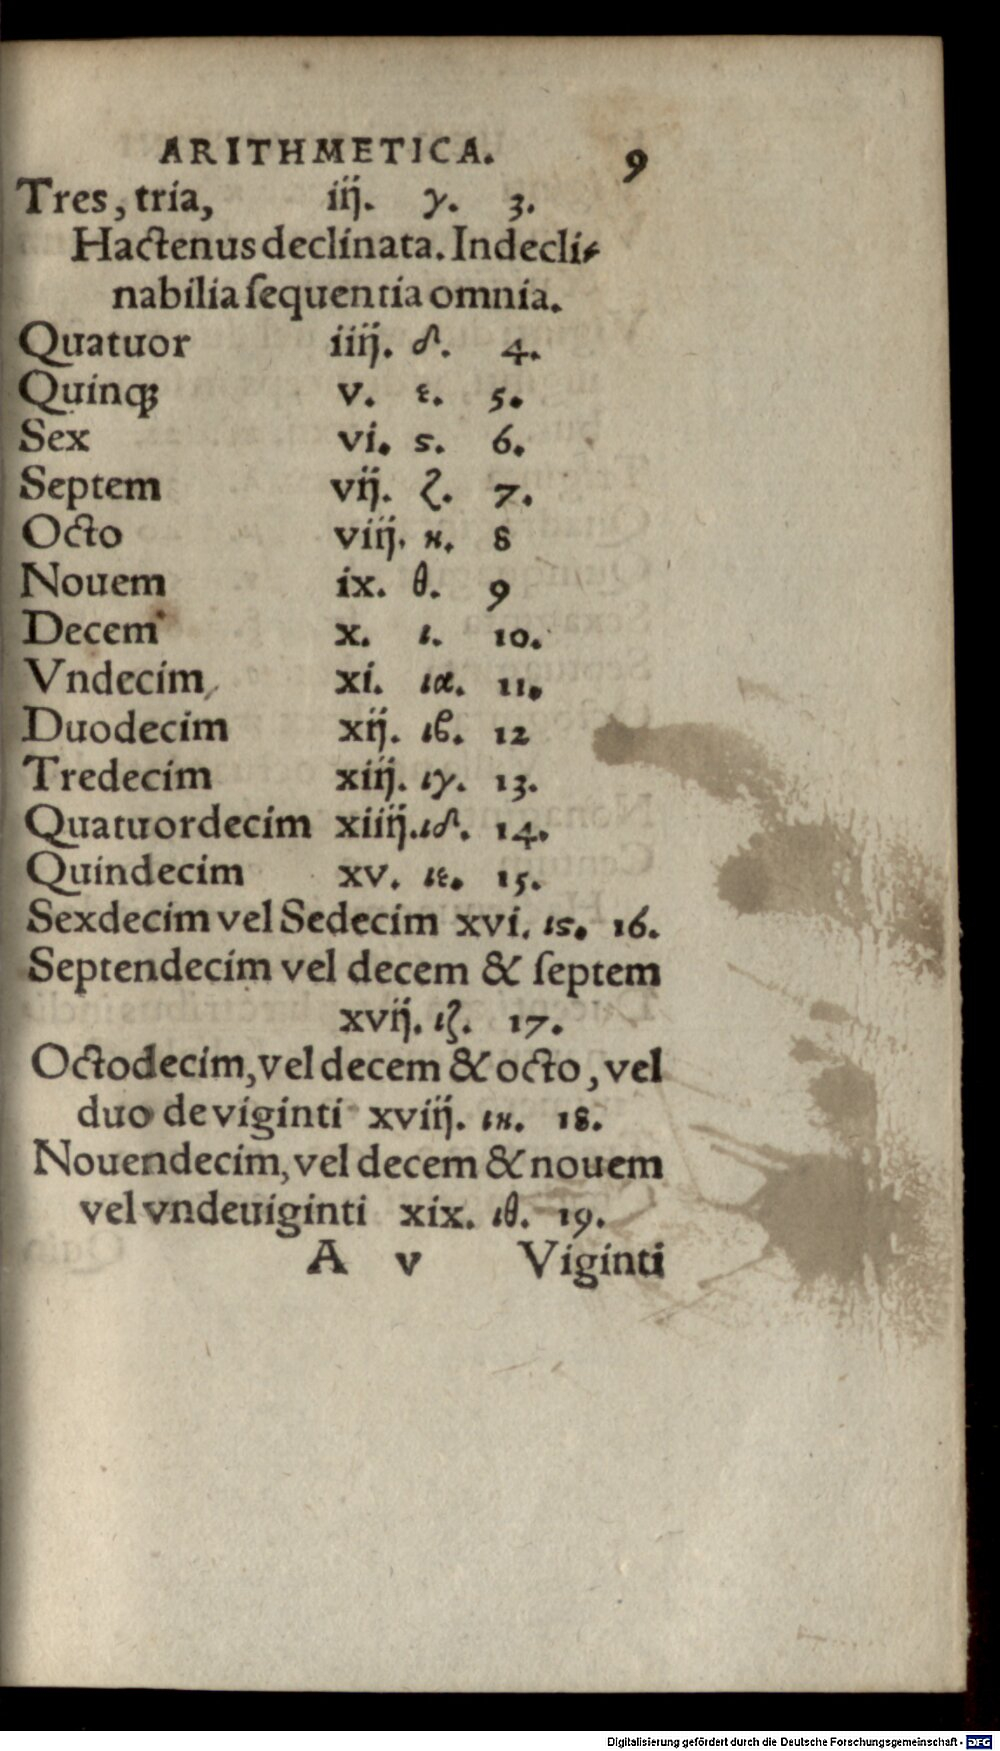 ARITHMETICA. 9
Tres, tria, iij. γ. 3.
Hactenus declinata. Indecli-
nabilia ſequentia omnia.
Quatuor iiij. δ. 4.
Quinq; v. ε. 5.
Sex vi. ϛ. 6.
Septem vij. ζ. 7.
Octo viij. η. 8
Nouem ix. θ. 9
Decem x. ι. 10.
Vndecim, xi. ια. 11.
Duodecim xij. ιβ. 12
Tredecim xiij. ιγ. 13.
Quatuordecim xiiij. ιδ. 14.
Quindecim xv. ιε. 15.
Sexdecim vel Sedecim xvi. ιϛ. 16.
Septendecim vel decem & ſeptem
xvij. ιζ. 17.
Octodecim, vel decem & octo, vel
duo de viginti xviij. ιη. 18.
Nouendecim, vel decem & nouem
vel vndeuiginti xix. ιθ. 19.
A v Viginti
Digitalisierung gefördert durch die Deutsche Forschungsgemeinschaft - DFG